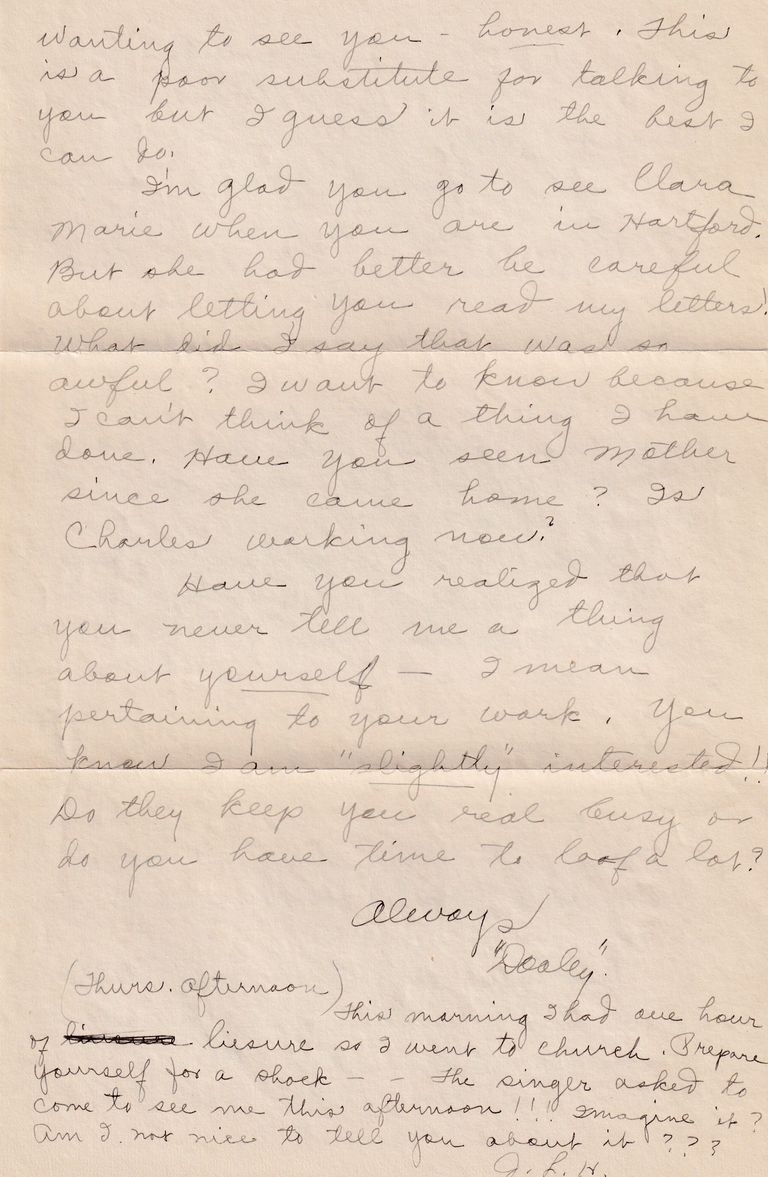 wanting to see you - honest. This
is a poor substitute for talking to
you but I guess it is the best I
can do.
I'm glad you go to see Clara
Marie when you are in Hartford.
But she had better be careful
about letting you read my letters!
What did I say that was so
awful? I want to know because
I can't think of a thing I have
done. Have you seen Mother
since she came home? Is
Charles working now?
Have you realized that
you never tell me a thing
about yourself — I mean
pertaining to your work. You
know I am "slightly" interested!!
Do they keep you real busy or
do you have time to loaf a lot?
Always
"Dooley".
(Thurs. afternoon)
This morning I had one hour
of liesure so I went to church. Prepare
yourself for a shock - - the singer asked to
come to see me this afternoon!!! Imagine it?
Am I not nice to tell you about it ???
J. L. H.